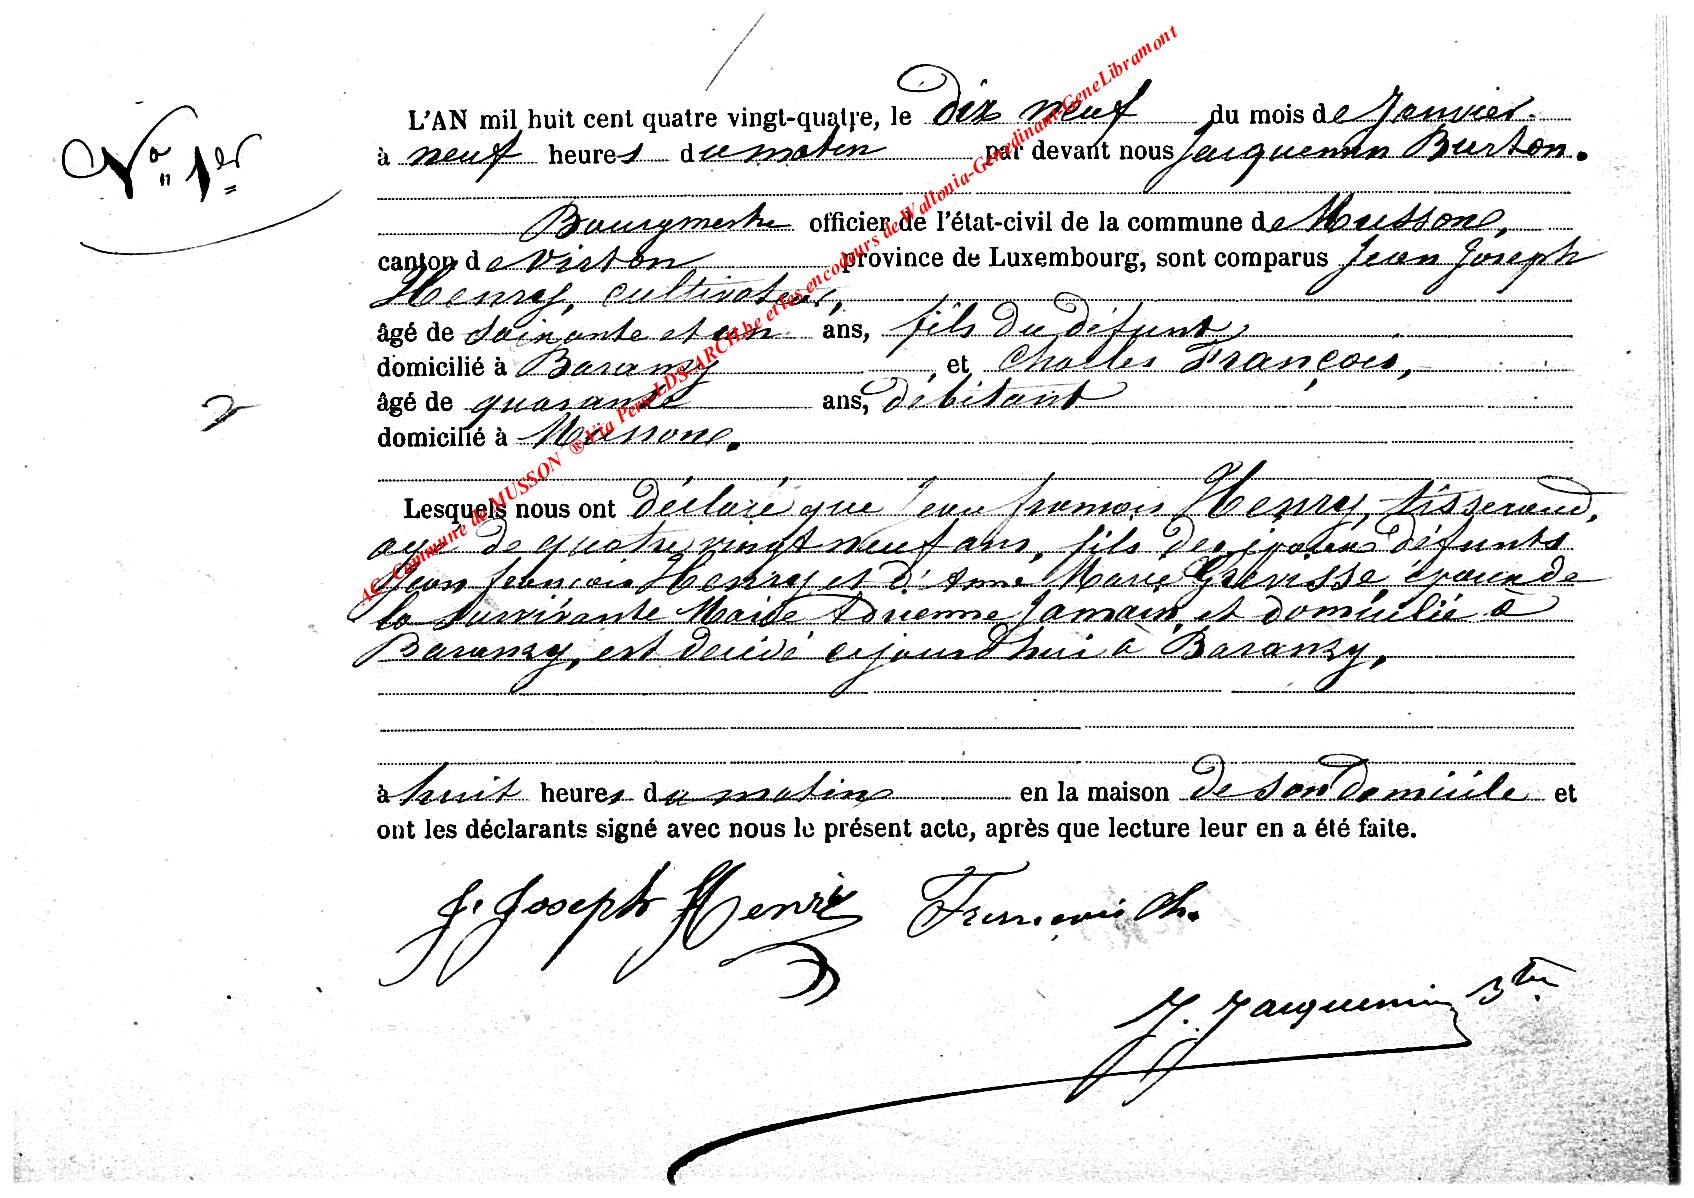 N° 1er
L'AN mil huit cent quatre vingt-quatre, le dix neuf du mois de Janvier.
à neuf heures du matin par devant nous Jacquemin Burton.
Bourgmestre officier de l'état-civil de la commune de Musson,
canton de Virton province de Luxembourg, sont comparus Jean Joseph
Henry, cultivateur,
âgé de soixante et un ans, fils du défunt
domicilié à Baranzy, et Charles François,
âgé de quarante ans, débitant
domicilié à Musson.
Lesquels nous ont déclaré que Jean françois Henry, tisserand,
agé de quatre vingt neuf ans, fils des époux défunts
Jean françois Henry et d'Anne Marie Grévisse, époux de
la survivante Marie Adrienne Jamain, et domicilié à
Baranzy, est décédé aujourd'hui à Baranzy,
à huit heures du matin en la maison de son domicile et
ont les déclarants signé avec nous le présent acte, après que lecture leur en a été faite.
J. Joseph Henri François Ch.
J. Jacquemin Btn
AC- Commune de MUSSON ® Via Pers-LDS-ARCH.be et les encodeurs de Wallonia-Genedinant-GeneLibramont